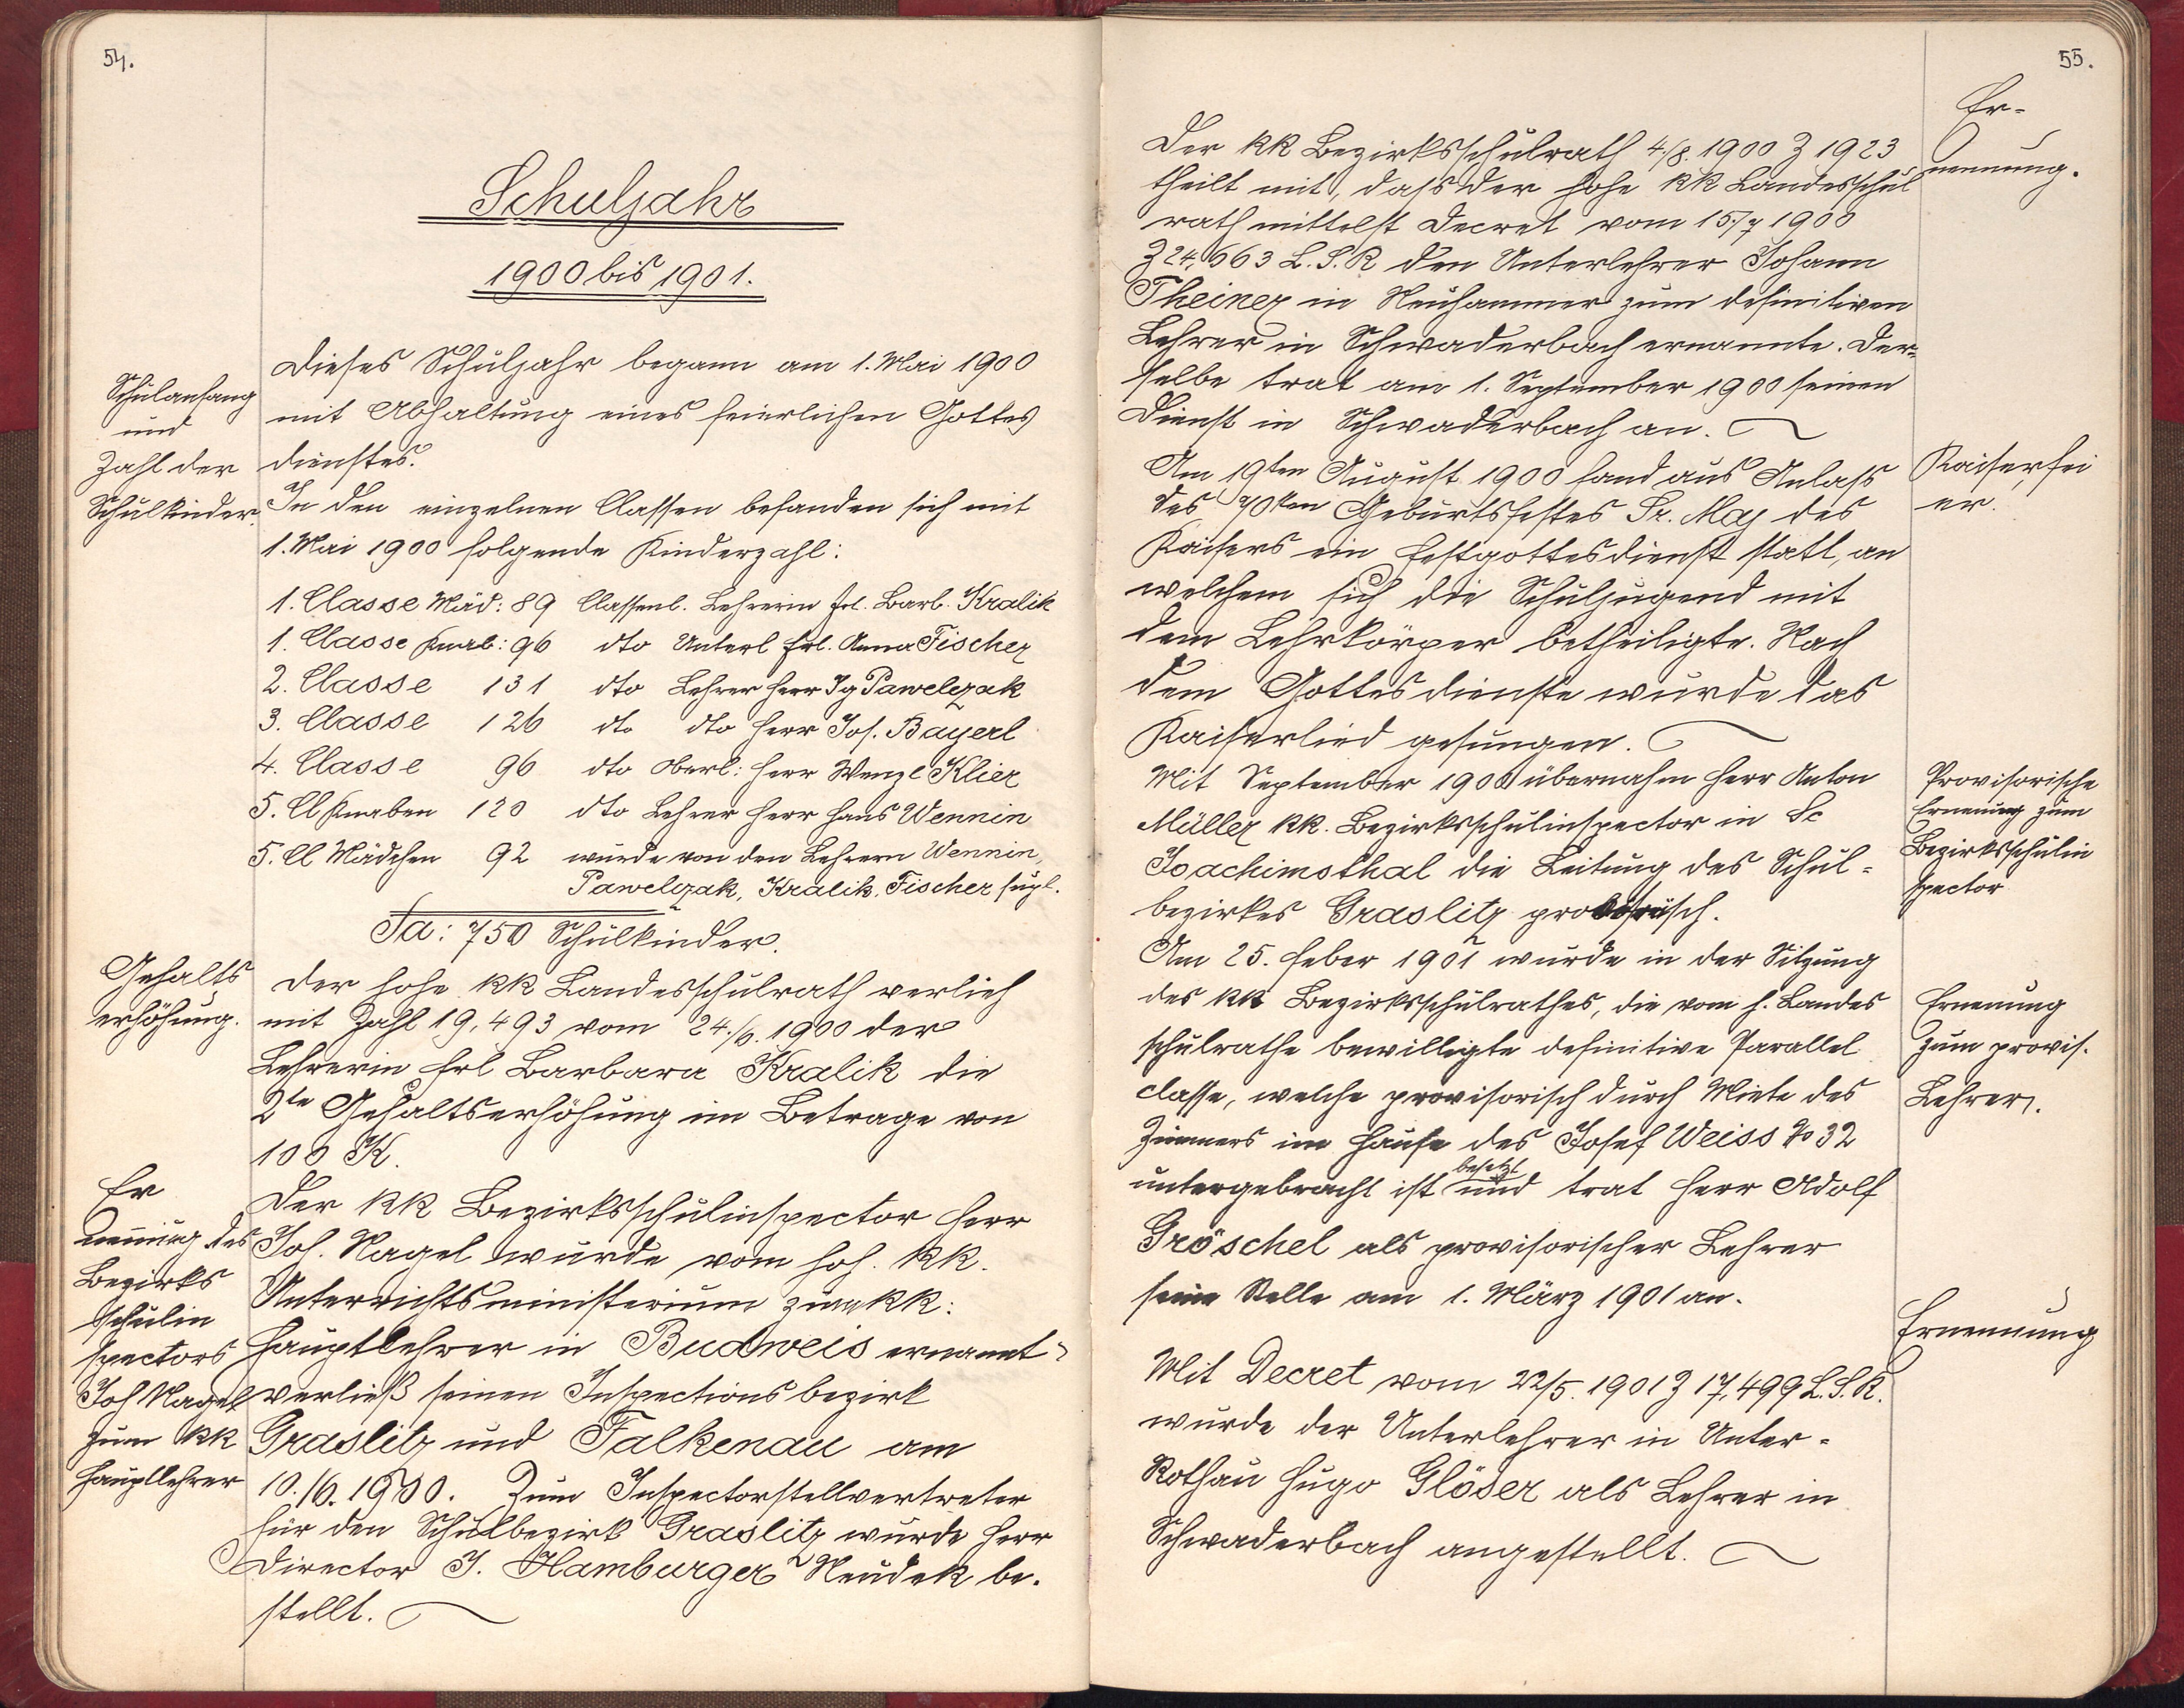 54.
Schuljahr
1900 bis 1901.
Schulanfang
und
Zahl der
Schulkinder.
Dieses Schuljahr begann am 1. Mai 1900
mit Abhaltung eines feierlichen Gottes
dienstes.
In den einzelnen Classen befanden sich mit
1. Mai 1900 folgende Kinderzahl:
1. Classe Mäd: 89 Classenl. Lehrerin Frl. Barb. Kralik
1. Classe Knab: 96 dto Unterl Frl. Anna Fischer
2. Classe 131 dto Lehrer Herr Ig Pawelczak
3. Classe 126 dto dto Herr Jos. Bayerl
4. Classe 96 dto Oberl: Herr Wenzl Klier
5. Cl Knaben 120 dto Lehrer Herr Hans Wennin
5. Cl Mädchen 92 wurde von den Lehrern Wennin,
Pawelczak, Kralik, Fischer supl.
Sa: 750 Schulkinder.
Gehalts
erhöhung.
Der hohe kk Landesschulrath verlieh
mit Zahl 19,493 vom 24./6. 1900 der
Lehrerin Frl Barbara Kralik die
2te Gehaltserhöhung im Betrage von
100 K.
Er
nennung des
Bezirks
schulin
spectors
Joh Nagel
zum kk
Hauptlehrer
Der kk Bezirksschulinspector Herr
Joh. Nagel wurde vom hoh. kk.
Unterrichtsministerium zum kk:
Hauptlehrer in Budweis ernannt
verließ seinen Inspectionsbezirk
Graslitz und Falkenau am
10./6. 1900. Zum Inspectorstellvertreter
für den Schulbezirk Graslitz wurde Herr
Director J. Hamburger Neudek be.
stellt.
55.
Er-
nennung.
Der kk Bezirksschulrath 4./8. 1900 Z 1923
theilt mit, dass der hohe kk Landesschul
rath mittelst Decret vom 15./7 1900
Z 24,663 L. S. R den Unterlehrer Johann
Theiner in Neuhammer zum definitiven
Lehrer in Schwaderbach ernannte. Der=
selbe trat am 1. September 1900 seinen
Dienst in Schwaderbach an.
Kaiserfei
er.
Am 19ten August 1900 fand aus Anlass
des 70ten Geburtsfestes Sr. Maj des
Kaisers ein Festgottesdienst statt, an
welchem sich die Schuljugend mit
dem Lehrkörper betheiligte. Nach
dem Gottesdienste wurde das
Kaiserlied gesungen.
Provisorische
Ernennung zum
Bezirksschulin
spector
Mit September 1900 übernahm Herr Anton
Müller kk. Bezirksschulinspector in Sc
Joachimsthal die Leitung des Schul=
bezirkes Graslitz provisorisch.
Ernennung
zum provis.
Lehrer.
Am 25. Feber 1901 wurde in der Sitzung
des kk Bezirksschulrathes, die vom h. Landes
schulrathe bewilligte definitive Parallel
classe, welche provisorisch durch Miete des
Zimmers im Hause des Josef Weiss No 32
untergebracht ist besetzt und trat Herr Adolf
Gröschel als provisorischer Lehrer
seine Stelle am 1. März 1901 an.
Ernennung
Mit Decret vom 22/5. 1901 Z 17,499 L. S. R.
wurde der Unterlehrer in Unter=
Rothau Hugo Glöser als Lehrer in
Schwaderbach angestellt.